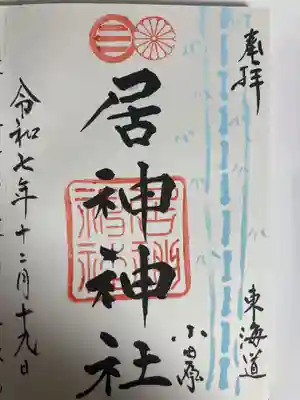 奉拝
東海道
小田原
居神神社
令和七年十二月十九日